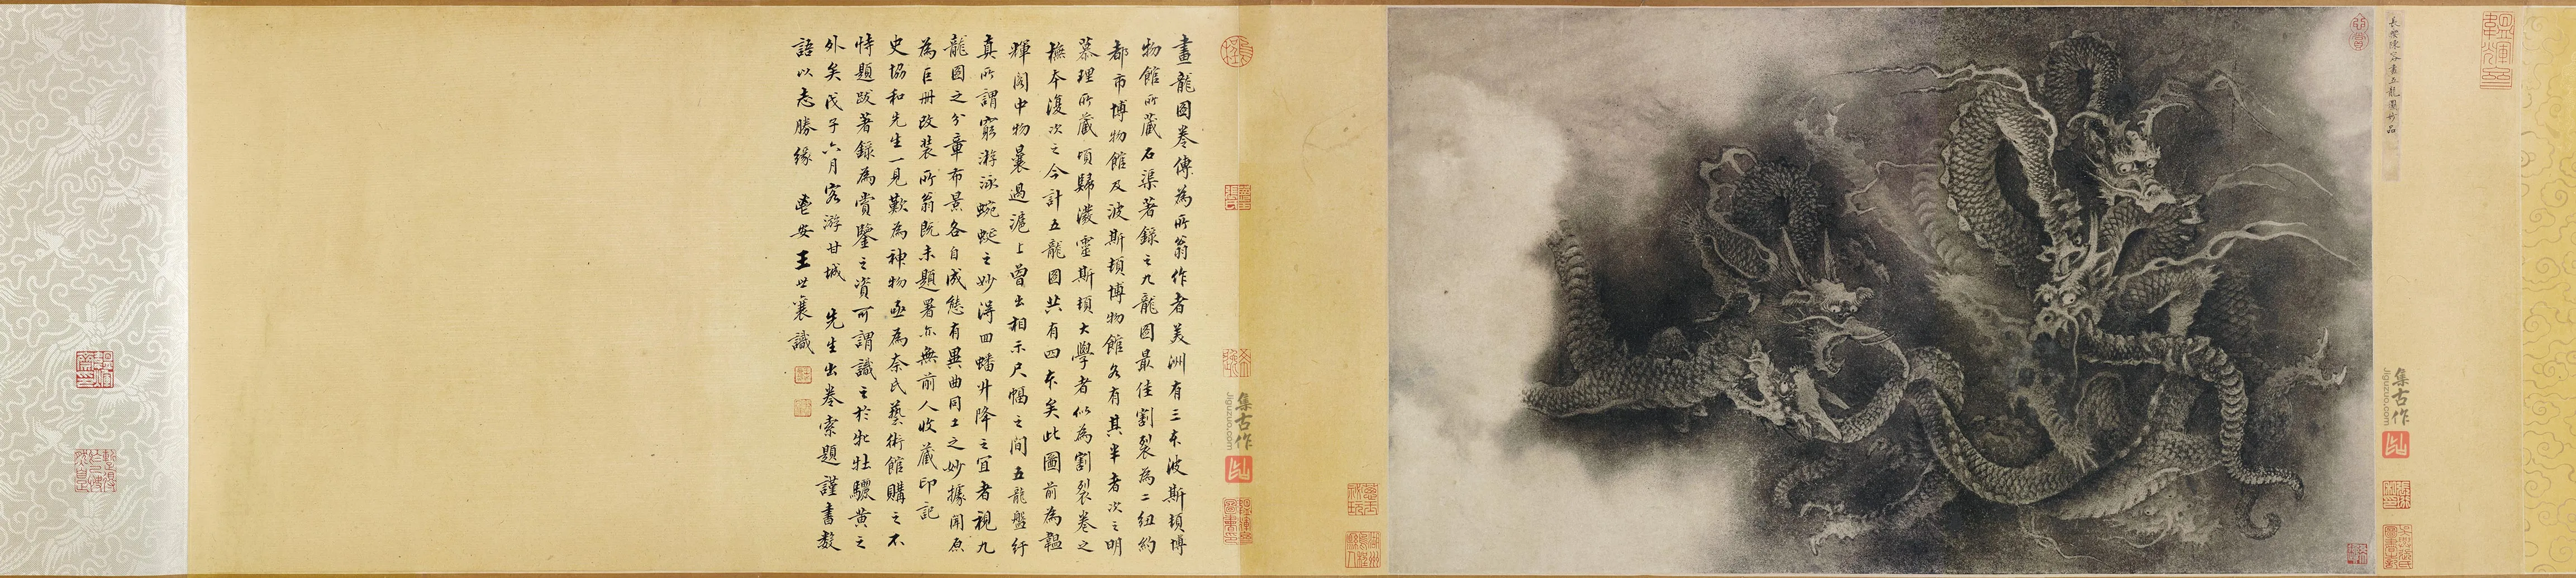 長樂陳容畫五龍圖妙品
集古作
Jiguzuo.com
畫龍圖卷傳為所翁作者美洲有三本波斯頓博
物館所藏石渠著錄之九龍圖最佳割裂為二紐約
都市博物館及波斯頓博物館各有其半者次之明
慕理所藏頃歸潑靈斯頓大學者似為割裂卷之
橅本復次之今計五龍圖共有四本矣此圖前為韞
輝閣中物曩過滬上曾出相示尺幅之間五龍盤紆
真所謂窮游泳蜿蜒之妙得回蟠升降之宜者視九
龍圖之分章布景各自成態有異曲同工之妙據聞原
為巨冊改裝所翁既未題署亦無前人收藏印記
史協和先生一見歎為神物亟為奈氏藝術館購之不
恃題跋著錄為賞鑒之資可謂識之於牝牡驪黃之
外矣戊子六月客游甘城 先生出卷索題謹書數
語以志勝緣 鬯安王世襄識
集古作
Jiguzuo.com